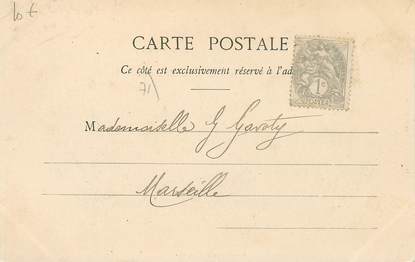 10 €
CARTE POSTALE
Ce côté est exclusivement réservé à l'ad
71
Mademoiselle G Gavoty
Marseille
1c